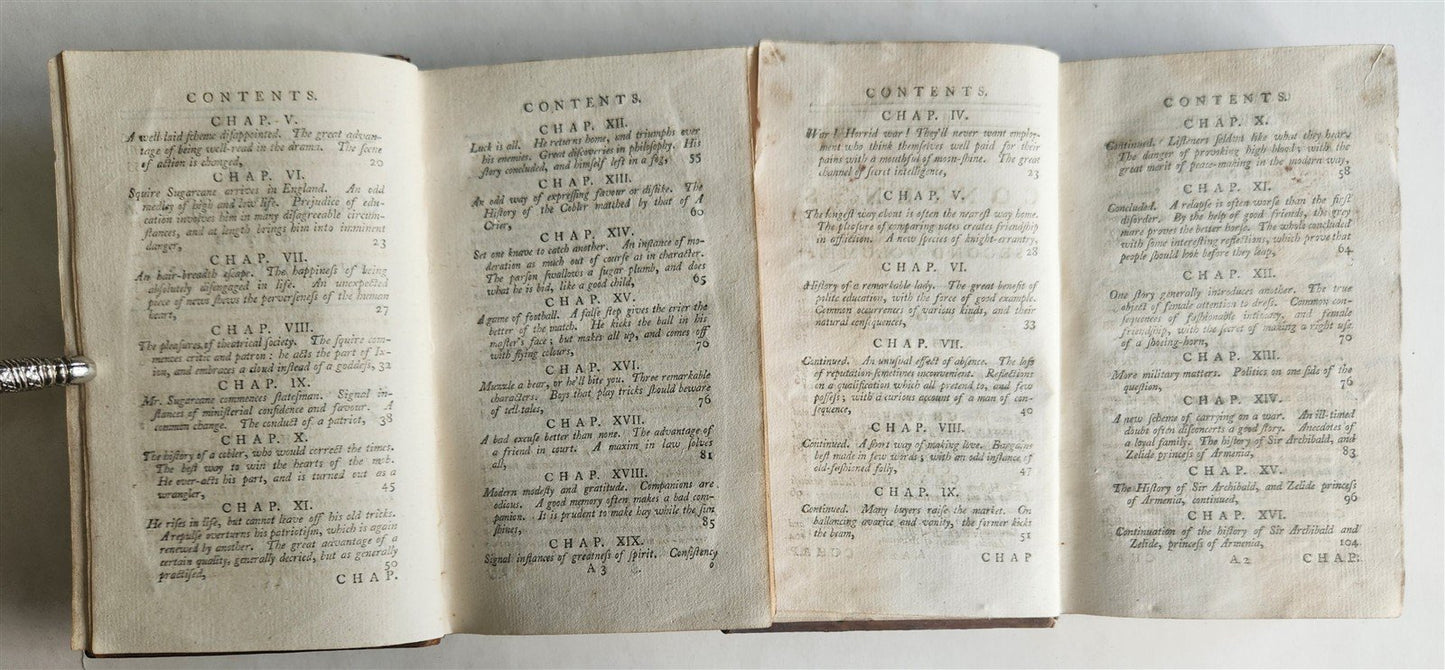 CONTENTS.
CHAP. V.
A well-laid ſcheme diſappointed. The great advan-
tage of being well-read in the drama. The ſcene
of action is changed, 20
CHAP. VI.
Squire Sugarcane arrives in England. An odd
medley of high and low life. Prejudice of edu-
cation involves him in many diſagreeable circum-
ſtances, and at length brings him into imminent
danger, 23
CHAP. VII.
An hair-breadth eſcape. The happineſs of being
abſolutely diſengaged in life. An unexpected
piece of news ſhews the perverſeneſs of the human
heart, 27
CHAP. VIII.
The pleaſures of theatrical ſociety. The ſquire com-
mences critic and patron: he acts the part of Ix-
ion, and embraces a cloud inſtead of a goddeſs, 32
CHAP. IX.
Mr. Sugarcane commences ſtateſman. Signal in-
ſtances of miniſterial confidence and favour. A
common change. The conduct of a patriot, 38
CHAP. X.
The hiſtory of a cobler, who would correct the times.
The beſt way to win the hearts of the mob.
He over-acts his part, and is turned out as a
wrangler, 45
CHAP. XI.
He riſes in life, but cannot leave off his old tricks.
A repulſe overturns his patriotiſm, which is again
renewed by another. The great advantage of a
certain quality, generally decried, but as generally
practiſed, 50
CHAP.
CONTENTS.
CHAP. XII.
Luck is all. He returns home, and triumphs over
his enemies. Great diſcoveries in philoſophy. His
ſtory concluded, and himſelf left in a fog, 55
CHAP. XIII.
An odd way of expreſſing favour or diſlike. The
Hiſtory of the Cobler matched by that of A
Crier, 60
CHAP. XIV.
Set one knave to catch another. An inſtance of mo-
deration as much out of courſe as in character.
The parſon ſwallows a ſugar plumb, and does
what he is bid, like a good child, 65
CHAP. XV.
A game of football. A falſe ſtep gives the crier the
better of the match. He kicks the ball in his
maſter's face; but makes all up, and comes off
with flying colours, 70
CHAP. XVI.
Muzzle a bear, or he'll bite you. Three remarkable
characters. Boys that play tricks ſhould beware
of tell-tales, 76
CHAP. XVII.
A bad excuſe better than none. The advantage of
a friend in court. A maxim in law ſolves
all, 81
CHAP. XVIII.
Modern modeſty and gratitude. Companions are
odious. A good memory often makes a bad com-
panion. It is prudent to make hay while the ſun
ſhines, 85
CHAP. XIX.
Signal inſtances of greatneſs of ſpirit. Conſiſtency
A 3
CONTENTS.
CHAP. IV.
War! Horrid war! They'll never want employ-
ment who think themſelves well paid for their
pains with a mouthful of moon-ſhine. The great
channel of ſecret intelligence, 23
CHAP. V.
The longeſt way about is often the neareſt way home.
The pleaſure of comparing notes creates friendſhip
in affliction. A new ſpecies of knight-errantry,
28
CHAP. VI.
Hiſtory of a remarkable lady. The great benefit of
polite education, with the force of good example.
Common occurrences of various kinds, and their
natural conſequences, 33
CHAP. VII.
Continued. An unuſual effect of abſence. The loſs
of reputation ſometimes inconvenient. Reflections
on a qualification which all pretend to, and few
poſſeſs; with a curious account of a man of con-
ſequence, 40
CHAP. VIII.
Continued. A ſhort way of making love. Bargains
beſt made in few words; with an odd inſtance of
old-faſhioned folly, 47
CHAP. IX.
Continued. Many buyers raiſe the market. On
ballancing avarice and vanity, the former kicks
the beam, 51
CHAP
CONTENTS.
CHAP. X.
Continued. Liſteners ſeldom like what they hear.
The danger of provoking high blood; with the
great merit of peace-making in the modern way,
58
CHAP. XI.
Concluded. A relapſe is often worſe than the firſt
diſorder. By the help of good friends, the grey
mare proves the better horſe. The whole concluded
with ſome intereſting reflections, which prove that
people ſhould look before they leap, 64
CHAP. XII.
One ſtory generally introduces another. The true
object of female attention to dreſs. Common con-
ſequences of faſhionable intimacy, and female
friendſhip, with the ſecret of making a right uſe
of a ſhoeing-horn, 70
CHAP. XIII.
More military matters. Politics on one ſide of the
queſtion, 76
CHAP. XIV.
A new ſcheme of carrying on a war. An ill-timed
doubt often diſconcerts a good ſtory. Anecdotes of
a loyal family. The hiſtory of Sir Archibald, and
Zelide princeſs of Armenia, 83
CHAP. XV.
The Hiſtory of Sir Archibald, and Zelide princeſs
of Armenia, continued, 96
CHAP. XVI.
Continuation of the hiſtory of Sir Archibald and
Zelide, princeſs of Armenia, 104
A 2 CHAP.